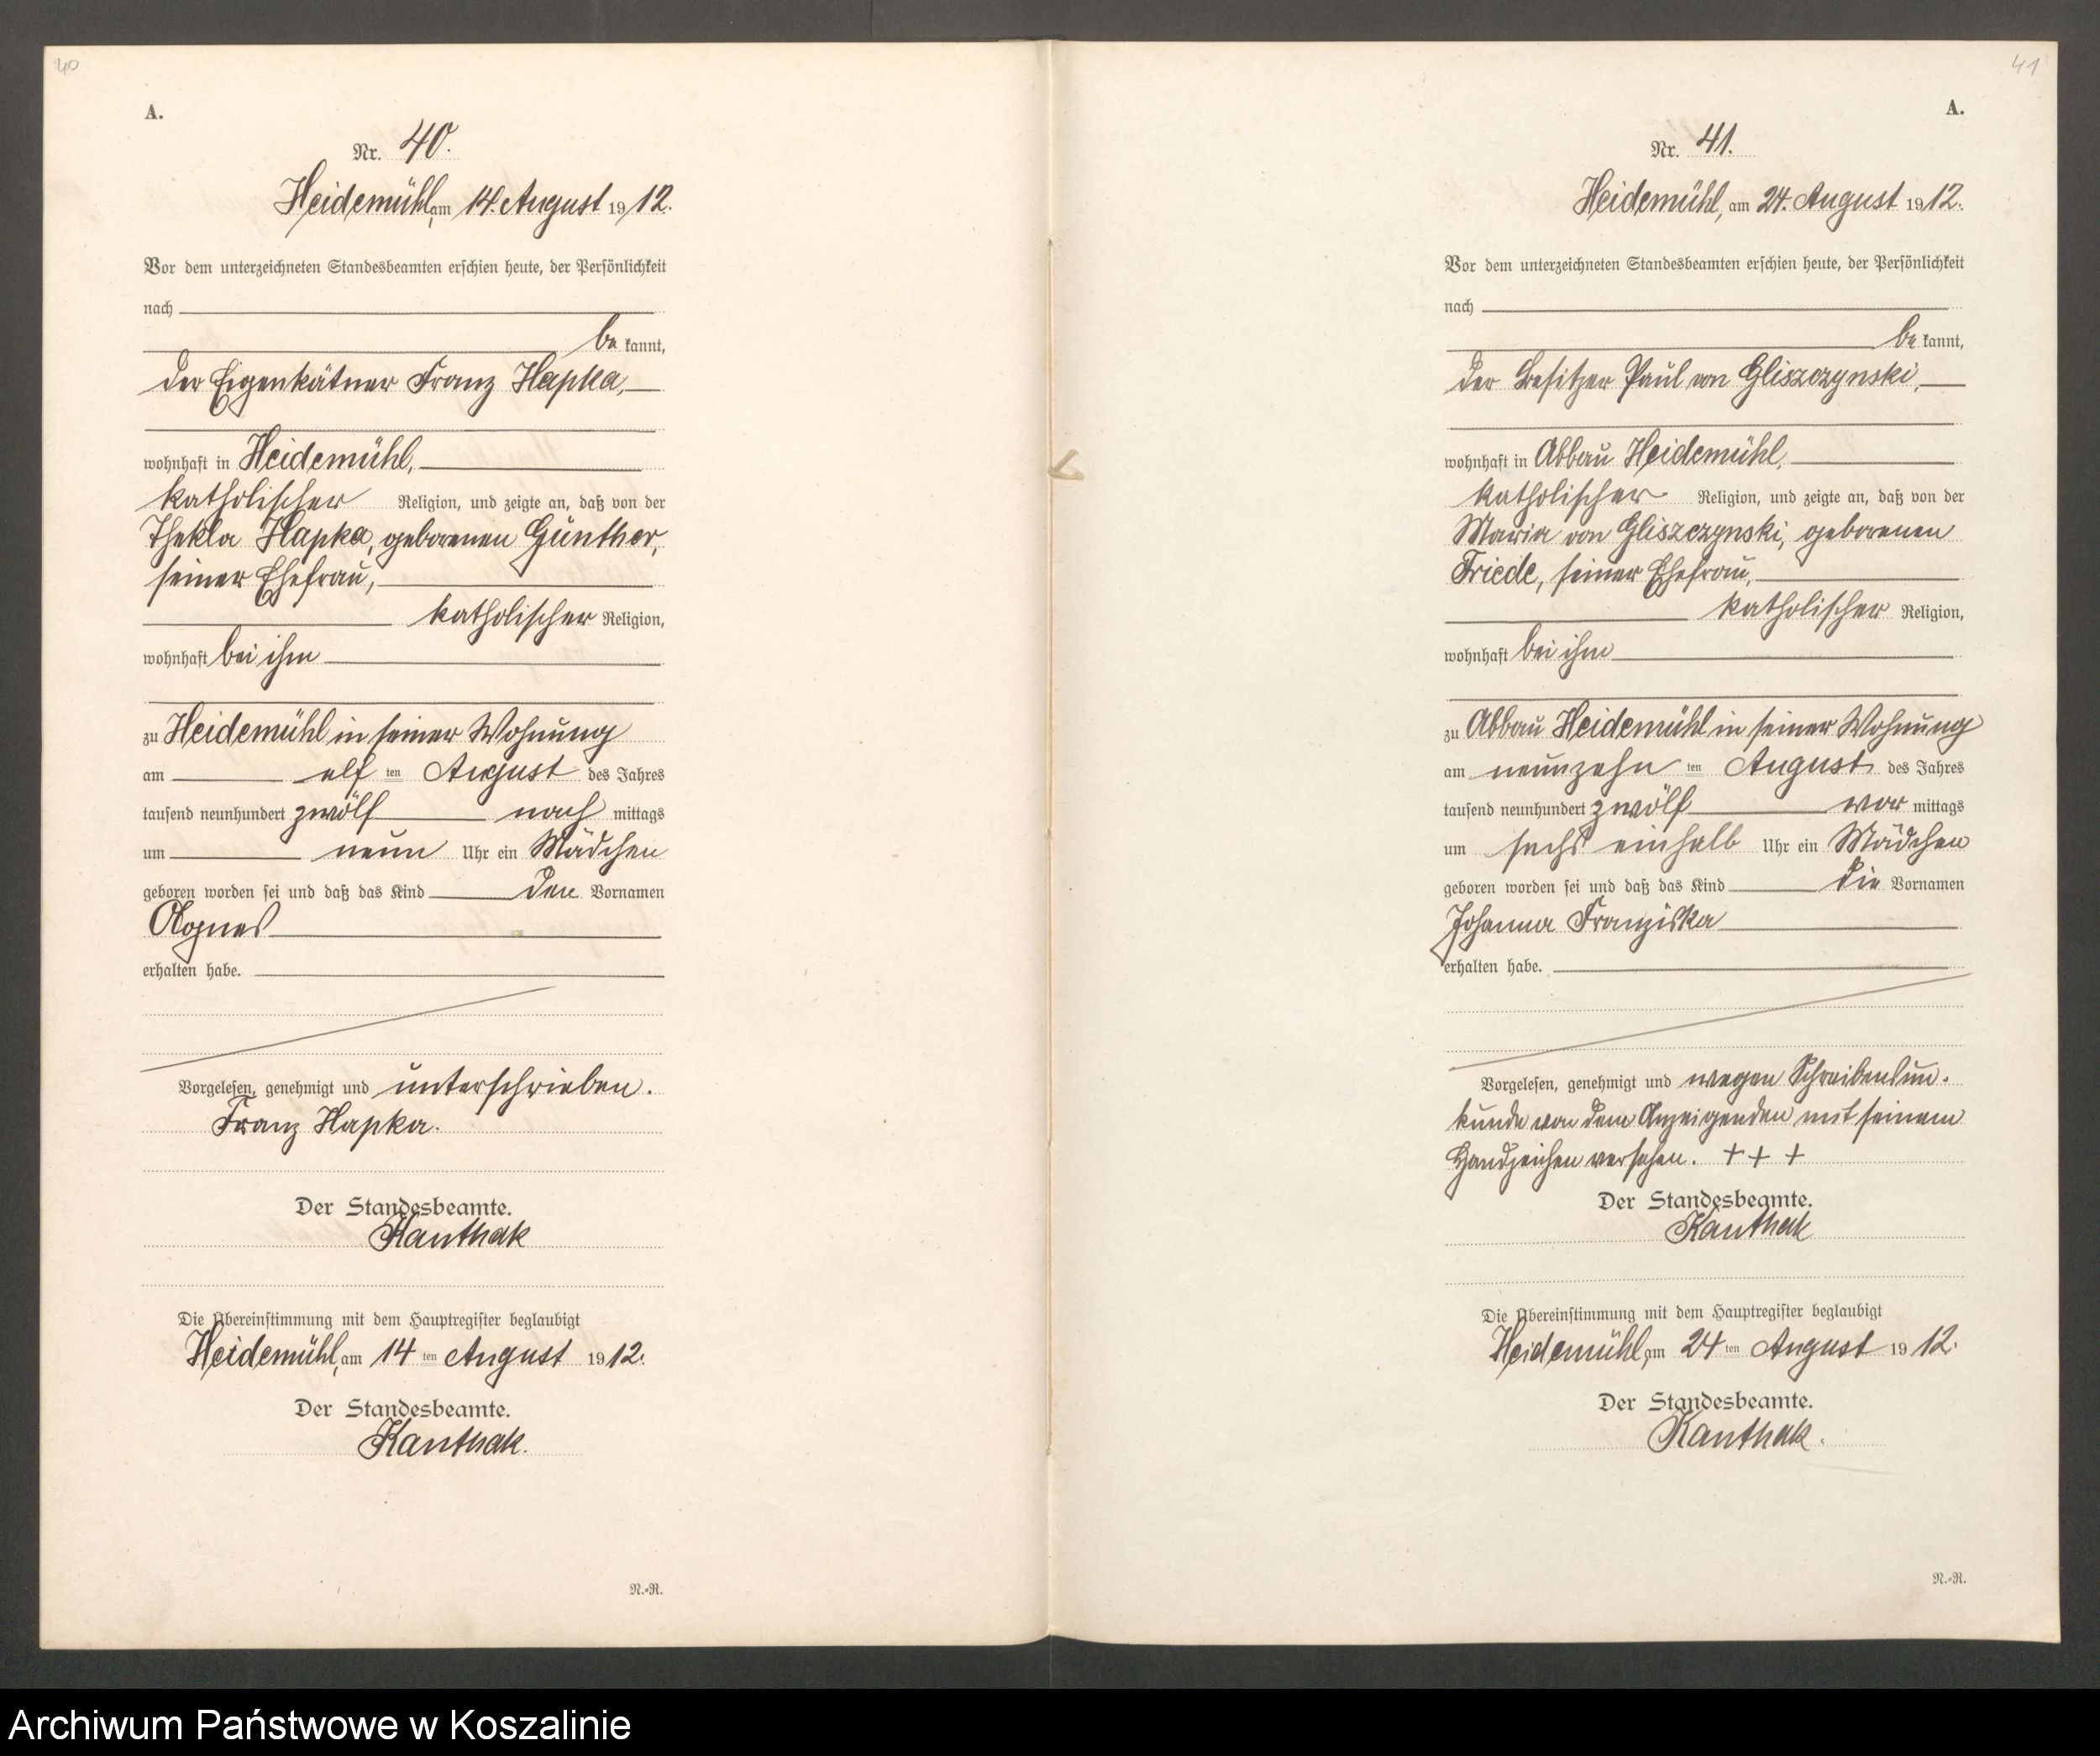 40
A.
Nr. 40.
Heidemühl, am 14. August 1912.
Vor dem unterzeichneten Standesbeamten erschien heute, der Persönlichkeit
nach
be kannt,
der Eigenkätner Franz Hapka,
wohnhaft in Heidemühl,
katholischer Religion, und zeigte an, daß von der
Thekla Hapka, geborenen Günther,
seiner Ehefrau,
katholischer Religion,
wohnhaft bei ihm
zu Heidemühl in seiner Wohnung
am elf ten August des Jahres
tausend neunhundert zwölf nach mittags
um neun Uhr ein Mädchen
geboren worden sei und daß das Kind den Vornamen
Agnes
erhalten habe.
Vorgelesen, genehmigt und unterschrieben.
Franz Hapka.
Der Standesbeamte.
Kanthak
Die Übereinstimmung mit dem Hauptregister beglaubigt
Heidemühl, am 14 ten August 1912.
Der Standesbeamte.
Kanthak.
N.-R.
41
A.
Nr. 41.
Heidemühl, am 24. August 1912.
Vor dem unterzeichneten Standesbeamten erschien heute, der Persönlichkeit
nach
be kannt,
der Besitzer Paul von Gliszczynski,
wohnhaft in Abbau Heidemühl,
katholischer Religion, und zeigte an, daß von der
Maria von Gliszczynski, geborenen
Friede, seiner Ehefrau,
katholischer Religion,
wohnhaft bei ihm
zu Abbau Heidemühl in seiner Wohnung
am neunzehn ten August des Jahres
tausend neunhundert zwölf vor mittags
um sechs einhalb Uhr ein Mädchen
geboren worden sei und daß das Kind die Vornamen
Johanna Franziska
erhalten habe.
Vorgelesen, genehmigt und wegen Schreibensun-
kunde von dem Anzeigenden mit seinem
Handzeichen versehen. + + +
Der Standesbeamte.
Kanthak
Die Übereinstimmung mit dem Hauptregister beglaubigt
Heidemühl, am 24 ten August 1912.
Der Standesbeamte.
Kanthak.
N.-R.
Archiwum Państwowe w Koszalinie